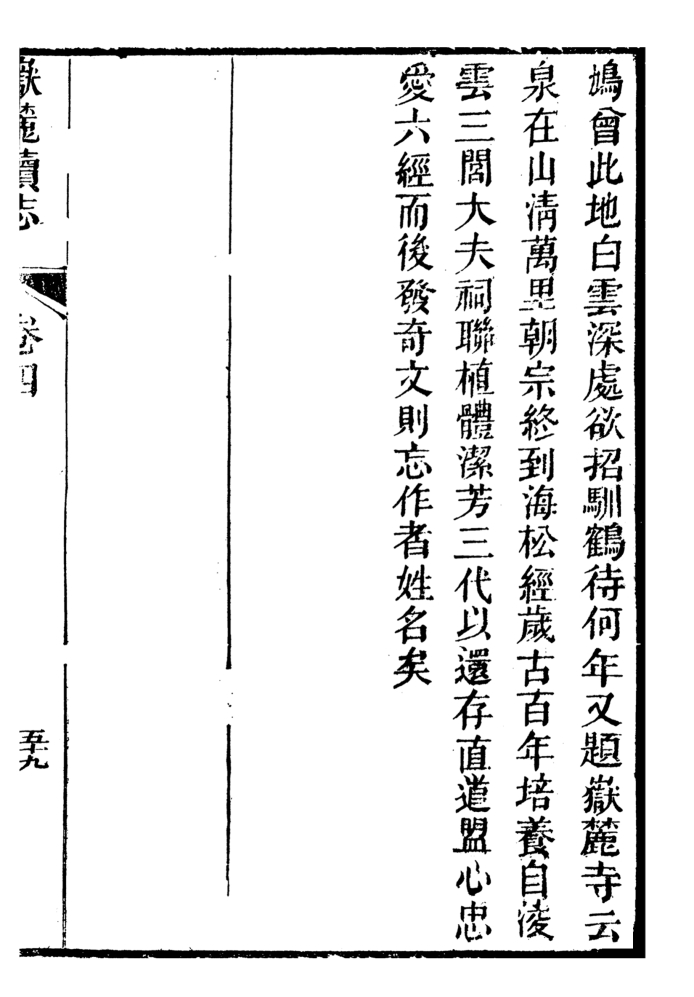 鳩曾此地白雲深處欲招馴鶴待何年又題嶽麓寺云
泉在山淸萬里朝宗終到海松經歲古百年培養自淩
雲三閭大夫祠聯植體潔芳三代以還存直道盟心忠
愛六經而後發奇文則忘作者姓名矣
嶽麓續志
卷四
五十九